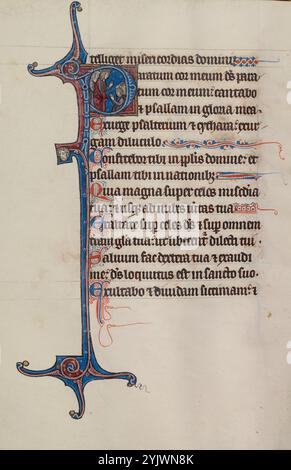 telliget misericordias domini
Paratum cor meum ds para
tum cor meum: cantabo
& psallam in gloria mea.
Exurge psalterium & cythara: exur
gam diluculo.
Confitebor tibi in pplis domine: et
psallam tibi in nationibz.
Quia magna super celos
tua: & usqz ad nubes ueritas tua
Exaltare super celos ds & sup omnem
terram gla tua: ut liberent dilecti tui.
Saluum fac dextera tua & exaudi
me: ds locutus est in sancto suo.
Exultabo & diuidam siccimam: &
alamy
Image ID: 2YJWN8K
www.alamy.com